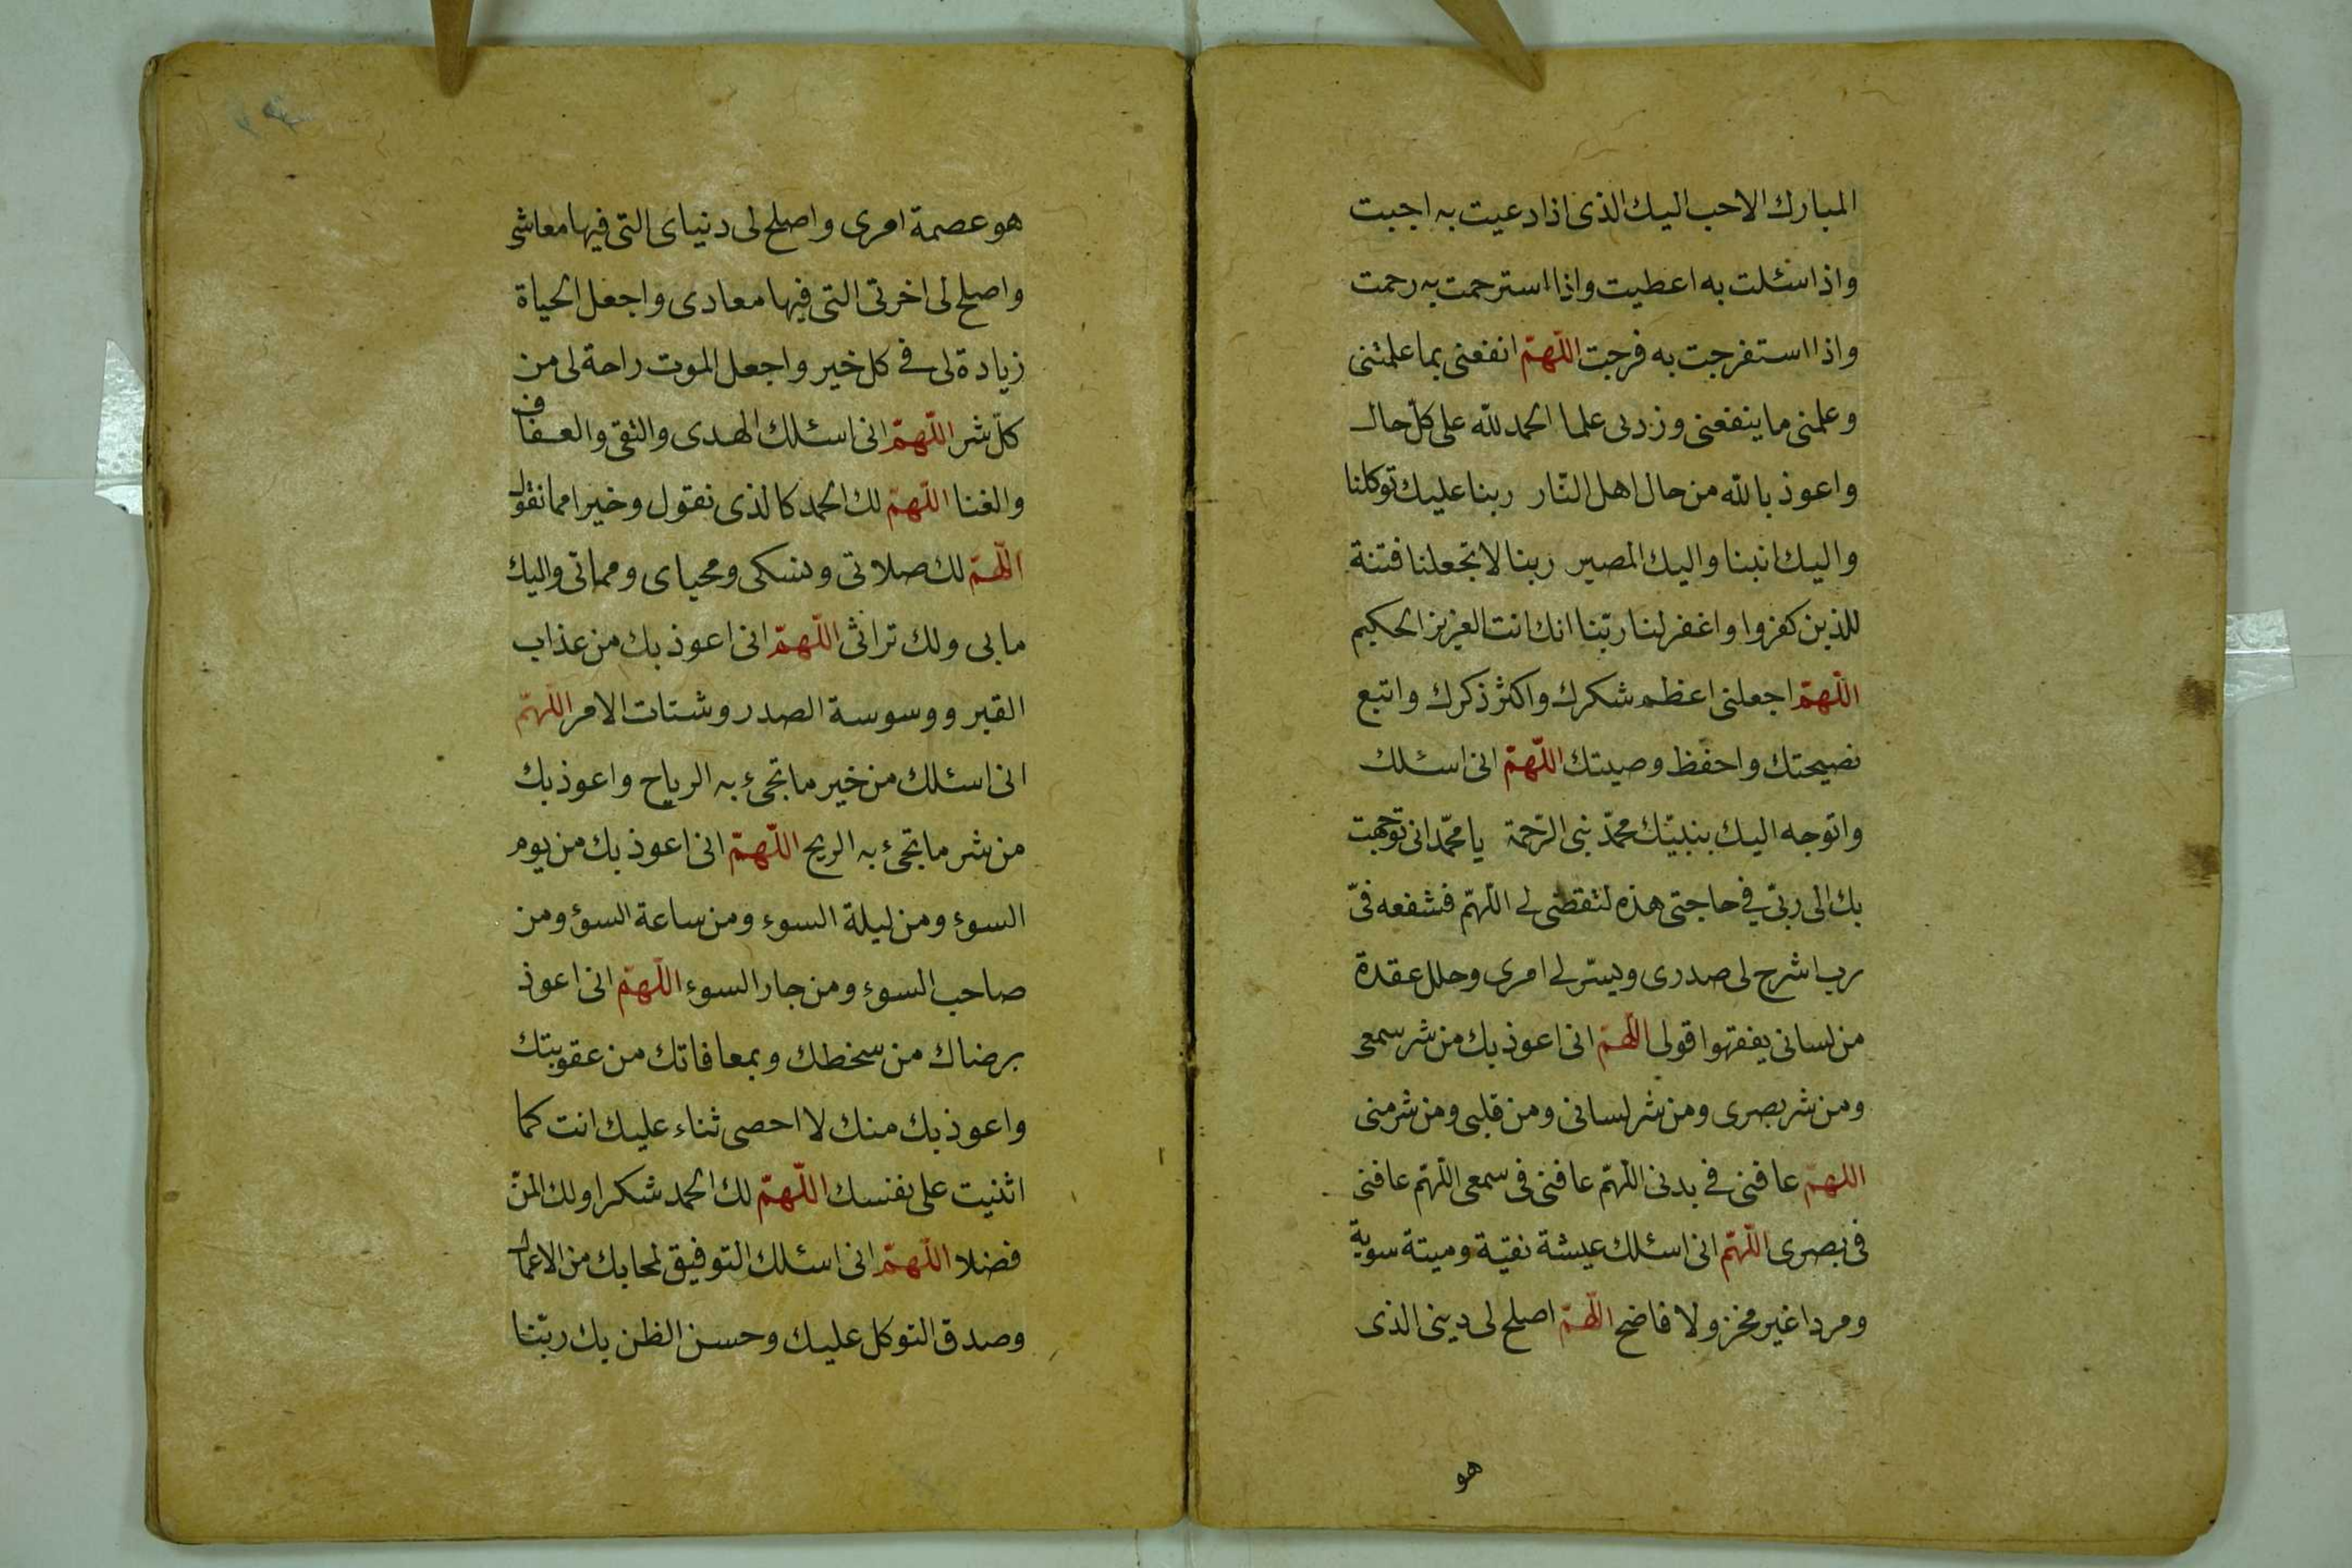 المبارك الاحب اليك الذى اذا دعيت به اجبت
واذا سئلت به اعطيت واذا استرحمت به رحمت
واذا استفرجت به فرجت اللّهمّ انفعنى بما علمتنى
وعلمنى ما ينفعنى وزدنى علما الحمد للّه على كلّ حال
واعوذ باللّه من حال اهل النّار ربنا عليك توكلنا
واليك انبنا واليك المصير ربنا لا تجعلنا فتنة
للذين كفروا واغفر لنا ربّنا انك انت العزيز الحكيم
اللّهمّ اجعلنى اعظم شكرك واكثر ذكرك واتبع
نصيحتك واحفظ وصيتك اللّهمّ انى اسئلك
واتوجه اليك بنبيّك محمّد نبى الرّحمة يا محمّد انى توجهت
بك الى ربّى فى حاجتى هذه لتقضى لى اللّهمّ فشفعه فىّ
رب اشرح لى صدرى ويسّر لى امرى وحلل عقدة
من لسانى يفقهوا قولى اللّهمّ انى اعوذ بك من شر سمعى
ومن شر بصرى ومن شر لسانى ومن قلبى ومن شر منى
اللهمّ عافنى فى بدنى اللّهمّ عافنى فى سمعى اللّهمّ عافنى
فى بصرى اللّهمّ انى اسئلك عيشة نقيّة وميتة سوية
ومردا غير مخز ولا فاضح اللّهمّ اصلح لى دينى الذى
هو
هو عصمة امرى واصلح لى دنياى التى فيها معاشى
واصلح لى اخرتى التى فيها معادى واجعل الحياة
زيادة لى فى كل خير واجعل الموت راحة لى من
كلّ شر اللّهمّ انى اسئلك الهدى والتقى والعفاف
والغنا اللّهمّ لك الحمد كالذى نقول وخيرا مما نقول
اللّهمّ لك صلاتى ونسكى ومحياى ومماتى واليك
مابى ولك تراثى اللّهمّ انى اعوذ بك من عذاب
القبر ووسوسة الصدر وشتات الامر اللّهمّ
انى اسئلك من خير ما تجىء به الرياح واعوذ بك
من شر ما تجىء به الريح اللّهمّ انى اعوذ بك من يوم
السوء ومن ليلة السوء ومن ساعة السوء ومن
صاحب السوء ومن جار السوء اللّهمّ انى اعوذ
برضاك من سخطك وبمعافاتك من عقوبتك
واعوذ بك منك لا احصى ثناء عليك انت كما
اثنيت على نفسك اللّهمّ لك الحمد شكرا ولك المنّ
فضلا اللّهمّ انى اسئلك التوفيق لمحابك من الاعمال
وصدق التوكل عليك وحسن الظن بك ربّنا